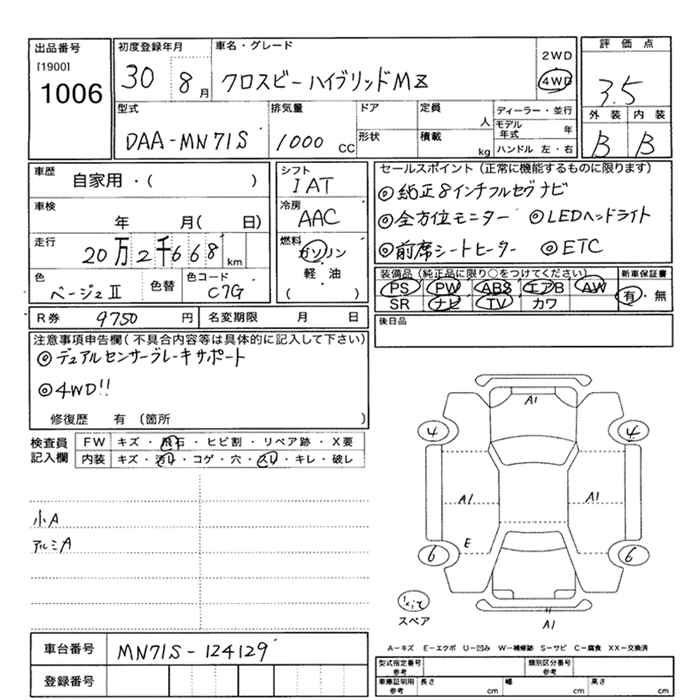 出品番号
[1900]
1006
初度登録年月
30 8月
車名・グレード
クロスビー ハイブリッド MZ
2WD
4WD
評価点
3.5
外装 内装
B B
型式
DAA-MN71S
排気量
1000 CC
ドア
形状
定員
人
積載
kg
ディーラー・並行
モデル年式 年
ハンドル 左・右
車歴
自家用・( )
車検
年 月( 日)
走行
20万2千668km
色
ベージュⅡ
色替
色コード
C7G
シフト
IAT
冷房
AAC
燃料
ガソリン
軽油
( )
セールスポイント(正常に機能するものに限ります)
◎純正8インチフルセグナビ
◎全方位モニター ◎LEDヘッドライト
◎前席シートヒーター ◎ETC
装備品(純正品に限り○をつけてください)
新車保証書
PS PW ABS エアB AW
SR ナビ TV カワ
有・無
R券 9750円
名変期限 月 日
後日品
注意事項申告欄(不具合内容等は具体的に記入して下さい)
◎デュアルセンサーブレーキサポート
◎4WD!!
修復歴 有 (箇所 )
検査員記入欄
FW キズ・飛石・ヒビ割・リペア跡・X要
内装 キズ・汚れ・コゲ・穴・スレ・キレ・破レ
小A
アルミA
A1
4 4
A1 A1
E
6 6
スペア
A1
A-キズ E-エクボ U-凹み W-補修跡 S-サビ C-腐食 XX-交換済
車台番号
MN71S-124129
登録番号
型式指定番号
参考
類別区分番号
参考
車庫証明用
参考
長さ cm
幅 cm
高さ cm